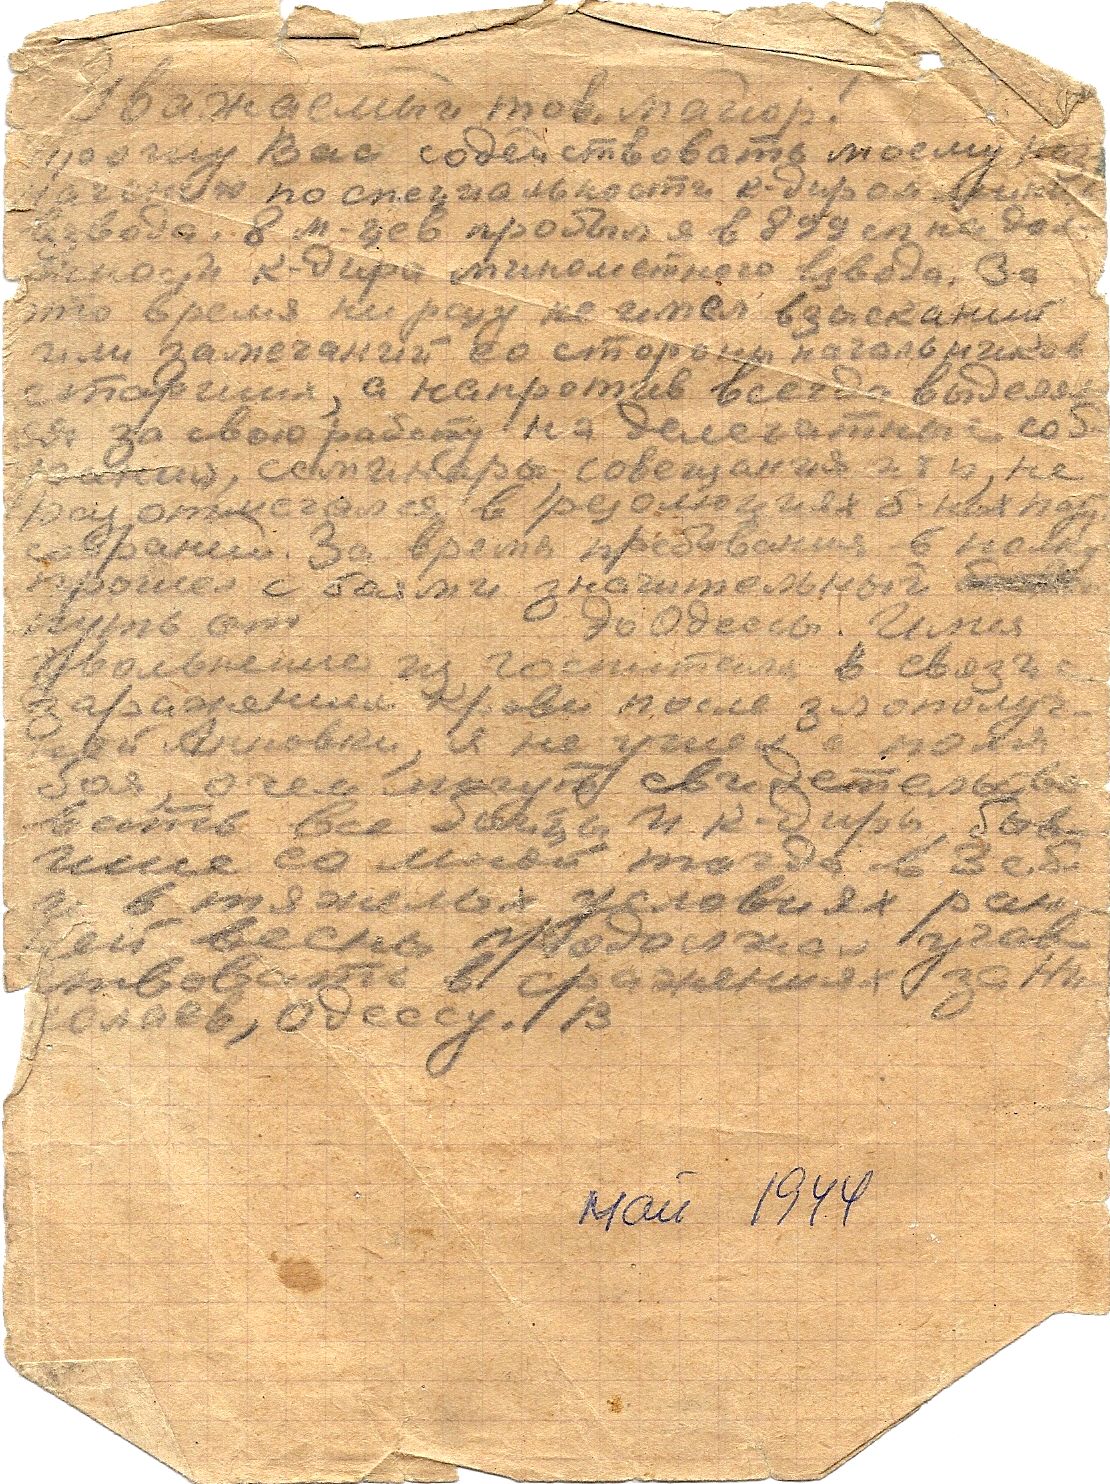 Уважаемый тов. майор!
прошу Вас содействовать моему
по специальности к-диром
взвода. 8 м-цев пробыл я в 899 сп на дол-
жности к-дира минометного взвода. За
это время ни разу не имел взысканий
или замечаний со стороны начальников
старших, а напротив всегда выделял
ся за свою работу на делегатные соб
рания, семинары, совещания и т.п., не
раз отмечался в резолюциях б-ных
собраний. За время пребывания в полку
прошел с боями значительный
путь от до Одессы. Имея
увольнение из госпиталя в связи с
заражением крови после злополуч-
ной Анновки, я не ушел с поля
боя, о чем могут свидетельство
вать все бойцы и к-диры, быв-
шие со мной тогда в 3 сб
и в тяжелых условиях ран-
ней весны продолжал учав-
ствовать в сражениях за Ни
колаев, Одессу. В
май 1944